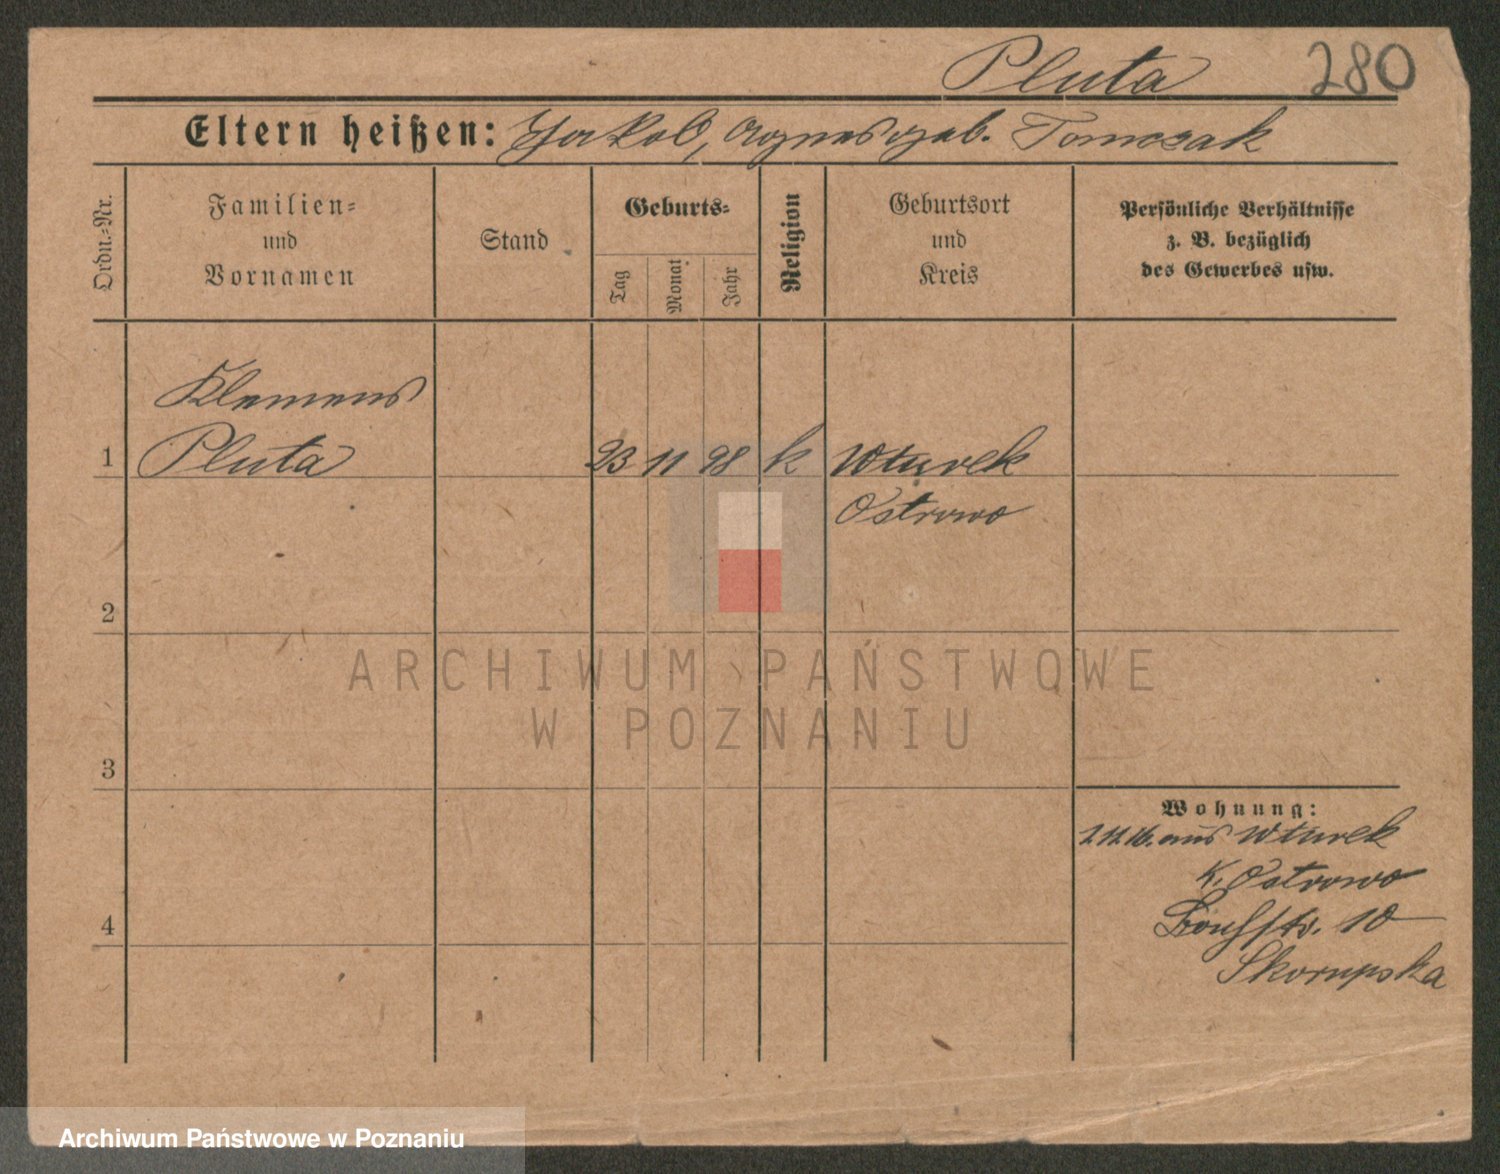 Pluta 280
Eltern heißen: Jakob, Agnes geb. Tomczak
Ordn.-Nr.
Familien-
und
Vornamen
Stand
Geburts-
Tag
Monat
Jahr
Religion
Geburtsort
und
Kreis
Persönliche Verhältnisse
z. B. bezüglich
des Gewerbes usw.
Klemens
1 Pluta 23 11 98 k Wturek
Ostrowo
2
ARCHIWUM PAŃSTWOWE
W POZNANIU
3
Wohnung:
aus Wturek
K. Ostrowo
4 10
Skorupska
Archiwum Państwowe w Poznaniu